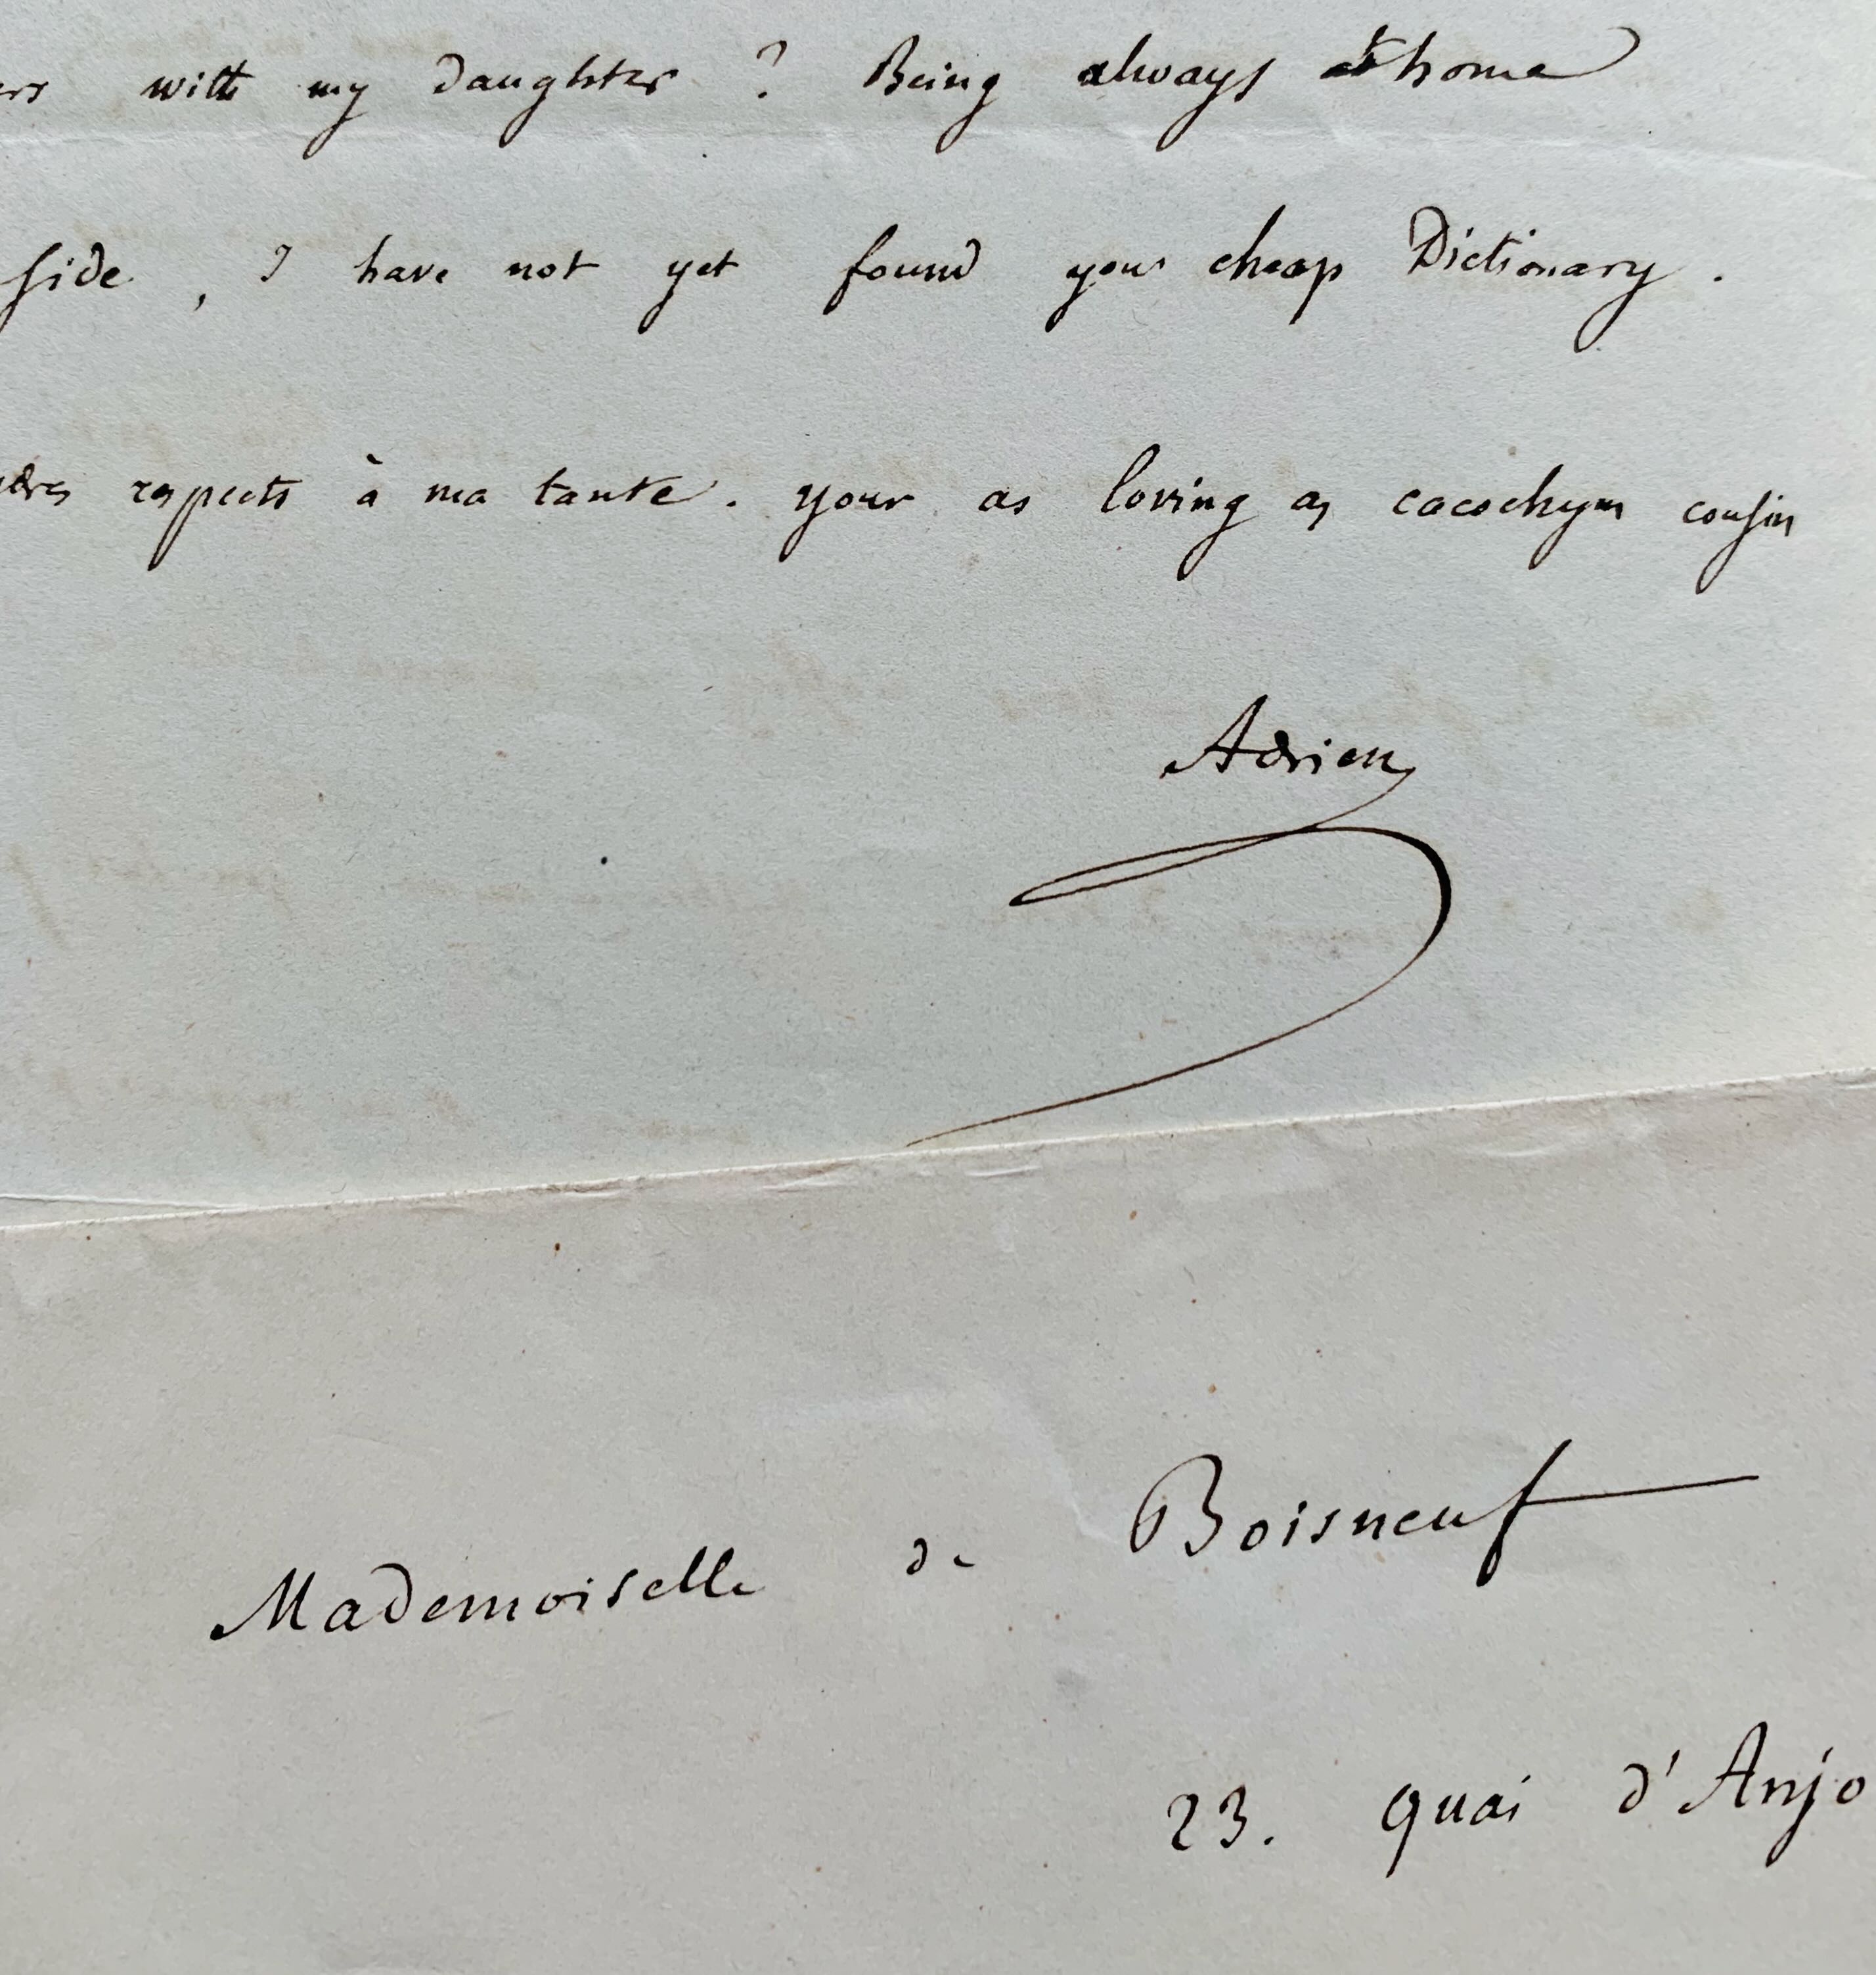 with my daughter ? Being always at home
side , I have not yet found your cheap Dictionary .
respects à ma tante . your as loving as cacochym cousin
Adrien
Mademoiselle de Boisneuf
23. quai d'Anjo